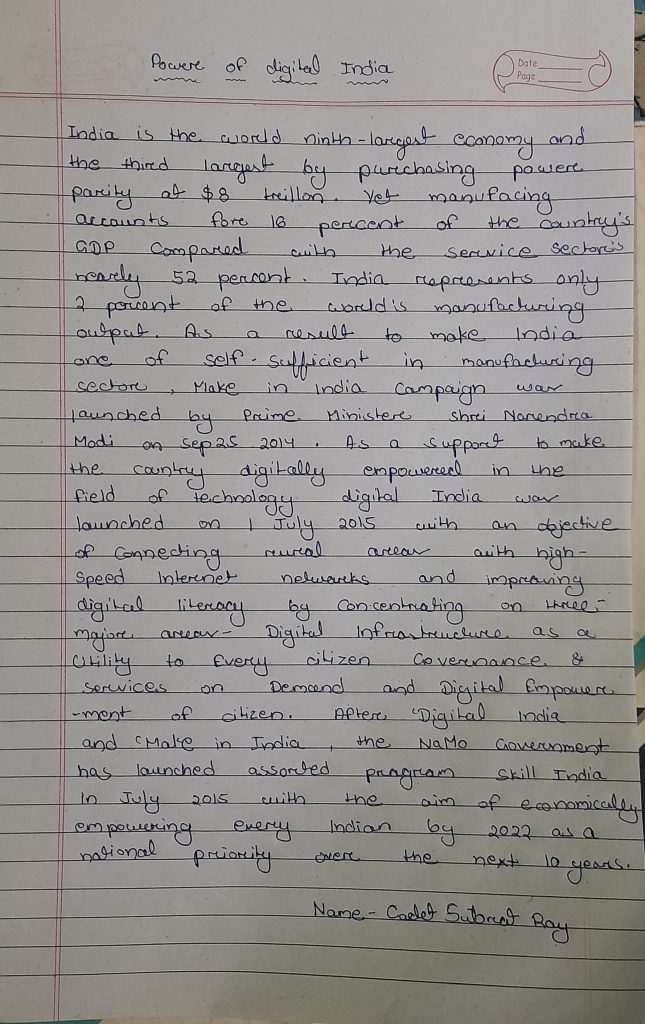 Powere of digital India
Date
Page
India is the world ninth-largest economy and
the third largest by purchasing powere
parity at $8 trillon. Yet manufacing
accounts fore 16 percent of the country's
GDP Compared with the service sectore's
nearly 52 percent. India represents only
2 percent of the world's manufacturing
output. As a result to make India
one of self-sufficient in manufacturing
sectore, Make in India Campaign was
launched by Prime Ministere Shri Narendra
Modi on Sep 25 2014. As a support to make
the country digitally empowered in the
field of technology digital India was
launched on 1 July 2015 with an objective
of Connecting rural areas with high-
speed Internet networks and improving
digital literacy by Concentrating on three-
majore areas- Digital Infrastructure as a
Utility to Every citizen Governance &
services on Demand and Digital Empowere
-ment of citizen. After 'Digital India
and 'Make in India, the NaMo Government
has launched assorted program Skill India
In July 2015 with the aim of economically
empowering every Indian by 2022 as a
national priority overe the next 10 years.
Name - Cadet Subrat Ray